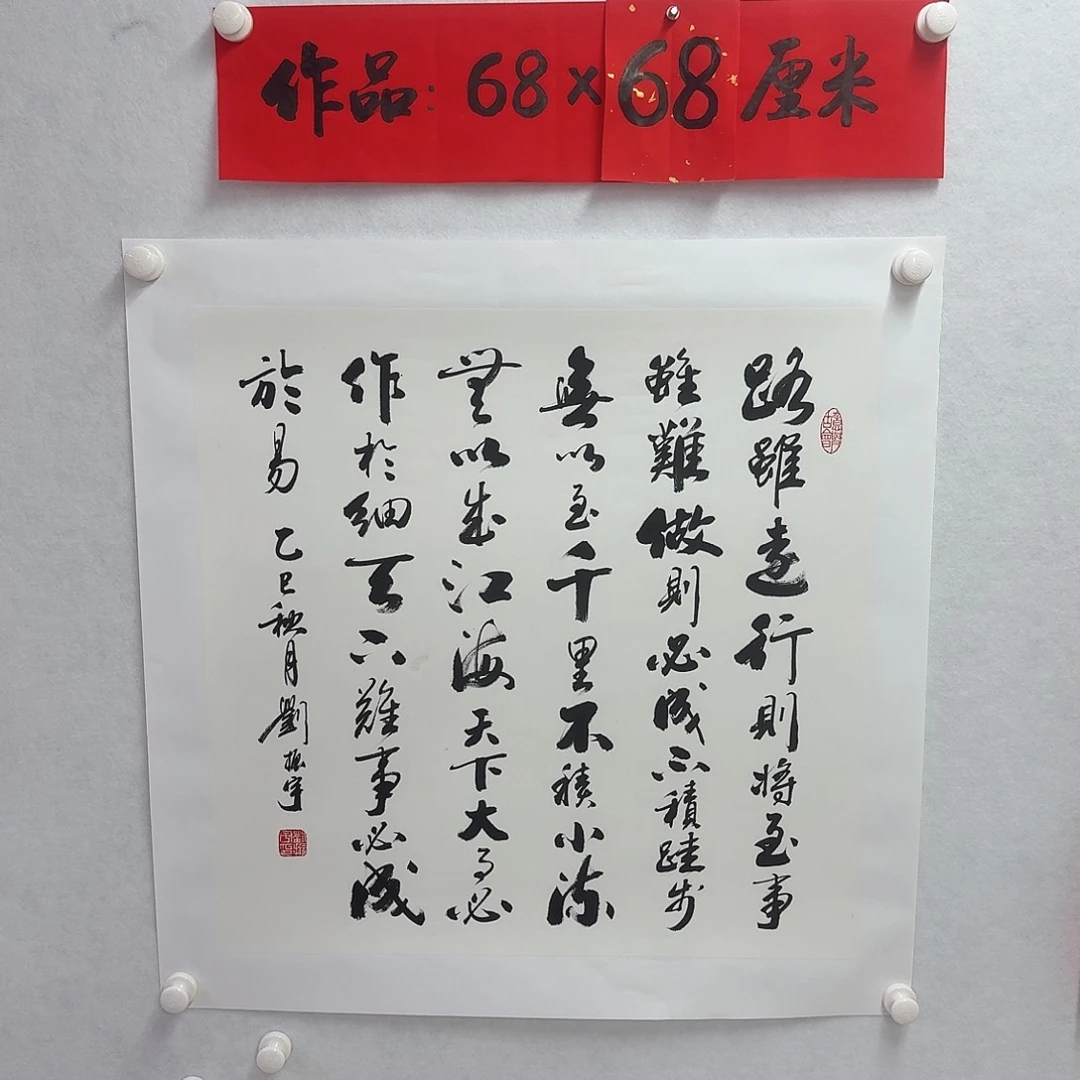 作品：68×68厘米
路雖遠行則將至事
雖難做則必成不積跬步
無以至千里不積小流
無以成江海天下大事必
作於細天下難事必成
於易 乙巳秋月 劉振宇